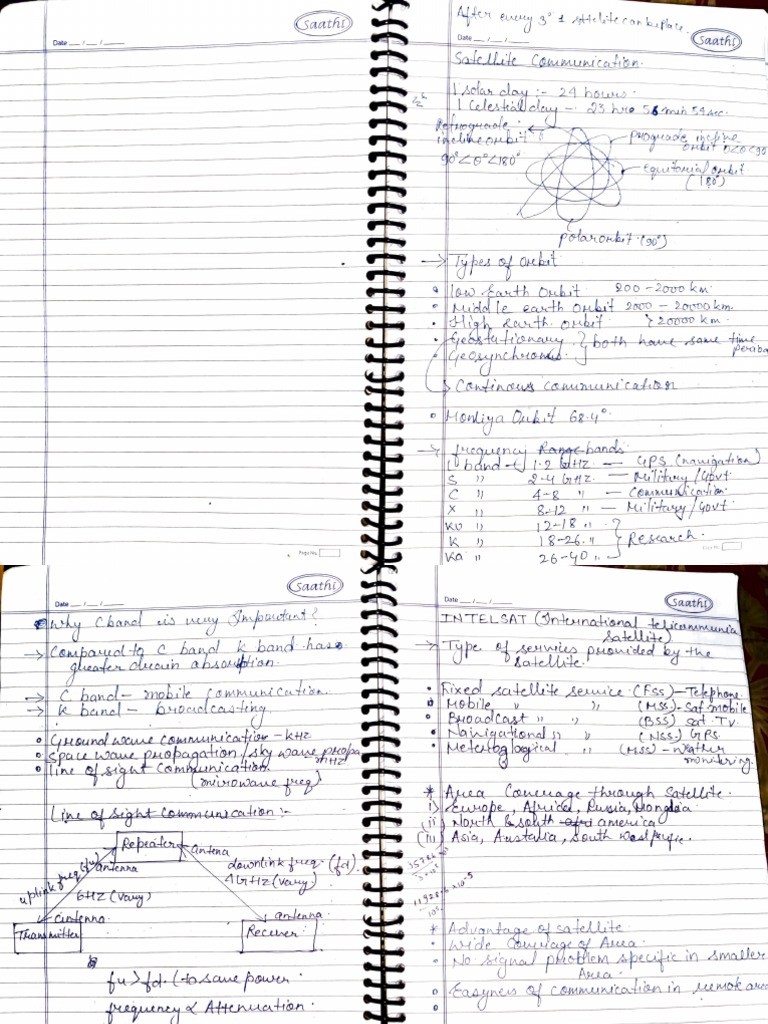 Saathi
Date __/__/__
After every 3° 1 sttelite can be place.
Saathi
Date __/__/__
Satellite Communication.
1 solar day :- 24 hours.
1 Celestial day - 23 hrs 56 min 54 sec.
Retrograde
incline orbit
90°<θ°<180°
prograde incline
orbit 0<θ<90
equitorial orbit
(180°)
polar orbit (90°)
→ Types of orbit
• low Earth Orbit 200-2000 km.
• Middle earth orbit 2000 - 20000 km.
• High earth orbit >20000 km.
• Geostationary } both have same time
• Geosynchrons }
→ Continous communication
• Monliya Orbit 68.4°
→ frequency Range bands
L band - 1-2 GHz - GPS (navigation)
S " 2-4 GHz - Military/Govt
C " 4-8 " - Communication
X " 8-12 " - Military/Govt.
KU " 12-18 "
K " 18-26 " } Research.
Ka " 26-40 "
Page No.
Saathi
Date __/__/__
Why C band is very Important?
→ Compared to C band k band has
greater drain absorption.
→ C band - mobile communication.
→ k band - broadcasting.
• Ground wave communication - kHz
• space wave propagation/sky wave propa
MHz
• line of sight communication.
(microwave freq)
Line of sight communication :-
Repeater
antenna
antena
uplink freq (fu)
6 GHz (vary)
downlink freq. (fd)
4 GHz (vary)
antenna
antenna
Transmitter
Receiver
fu > fd. (to save power
frequency ∝ Attenuation.
Saathi
Date __/__/__
INTELSAT (International telicommunica
Satellite)
→ Type of services provided by the
satellite.
• Fixed satellite service (FSS) - Telephone.
• Mobile " " (MSS) - Sat mobile
• Broadcast " " (BSS) Sat TV.
• Navigational " " (NSS) GPS.
• Meterological " (MSS) - weather
monitering.
* Area Coverage through Satellite.
i) Europe, Africa, Rusia, Mongolia
(ii) North & south america
(iii) Asia, Austalia, South West pacific.
* Advantage of satellite
• Wide Coverage of Area.
• No signal problem specific in smaller
Area.
• Easyness of communication in remok area